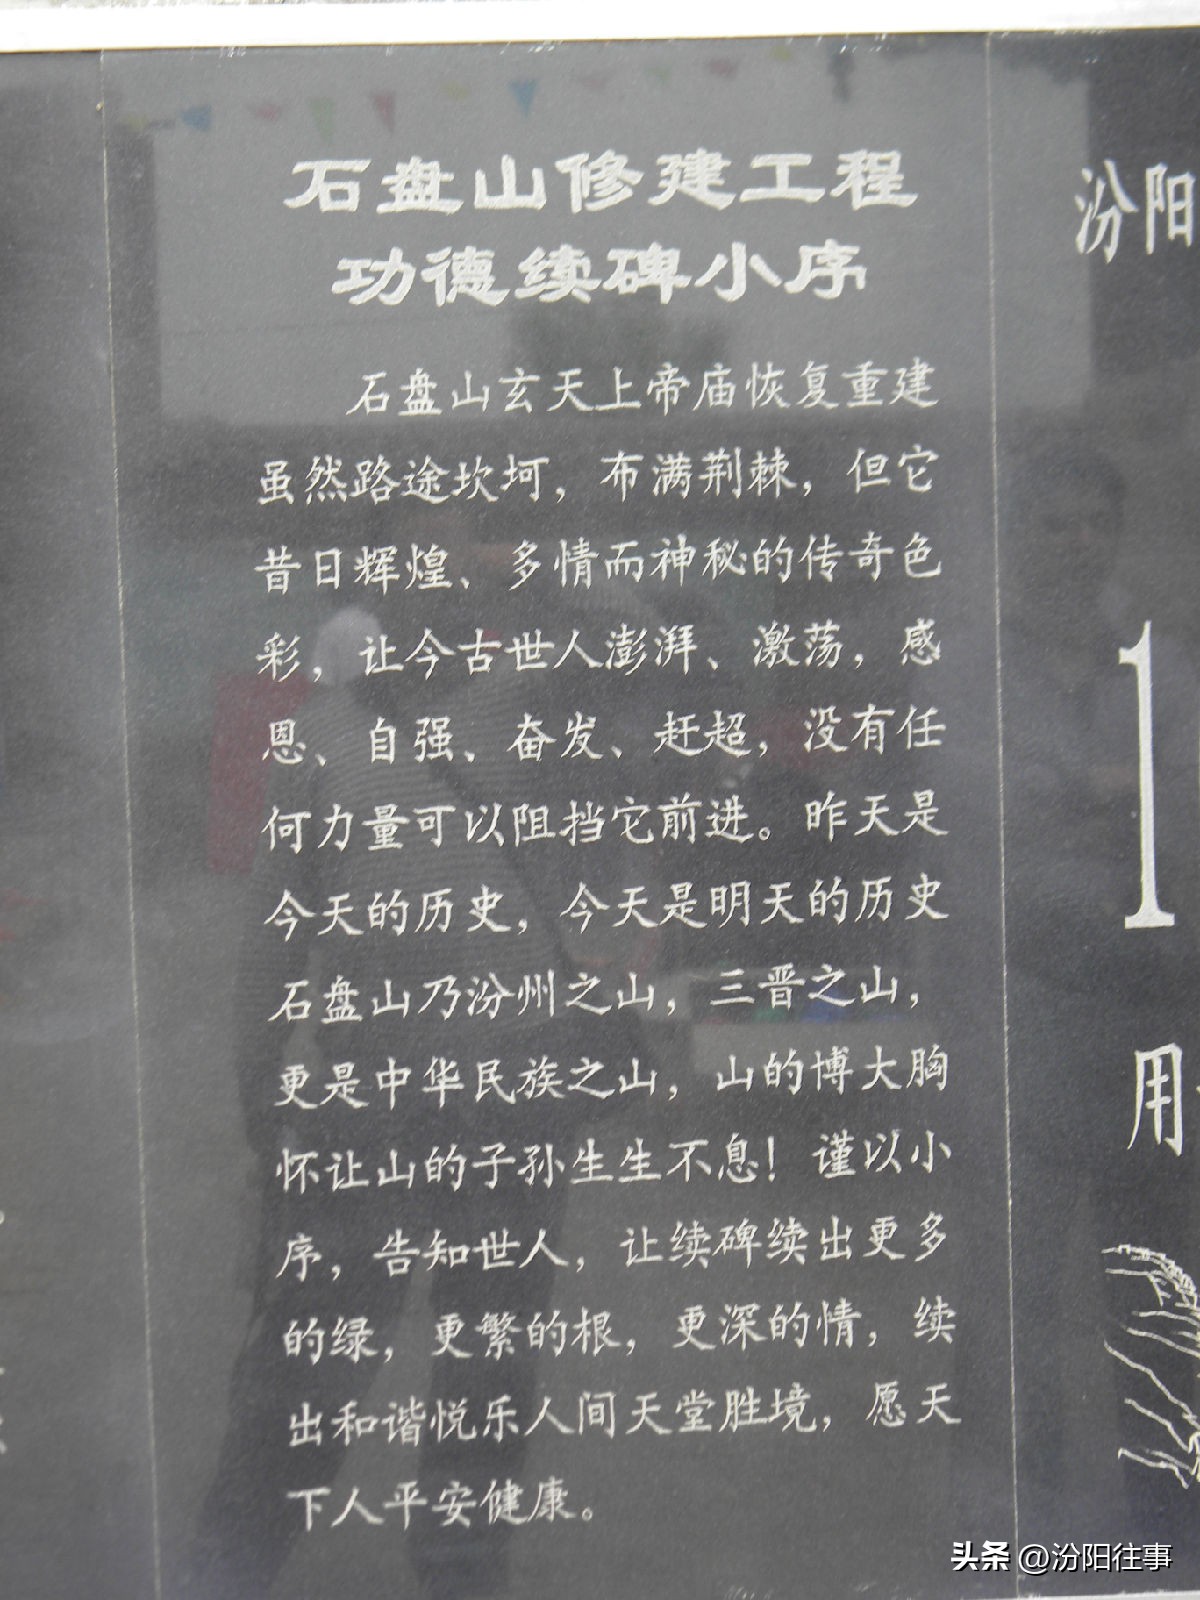 石盘山修建工程
功德续碑小序
石盘山玄天上帝庙恢复重建
虽然路途坎坷，布满荆棘，但它
昔日辉煌、多情而神秘的传奇色
彩，让今古世人澎湃、激荡，感
恩、自强、奋发、赶超，没有任
何力量可以阻挡它前进。昨天是
今天的历史，今天是明天的历史
石盘山乃汾州之山，三晋之山，
更是中华民族之山，山的博大胸
怀让山的子孙生生不息！谨以小
序，告知世人，让续碑续出更多
的绿，更繁的根，更深的情，续
出和谐悦乐人间天堂胜境，愿天
下人平安健康。
汾阳
1
用
头条 @汾阳往事